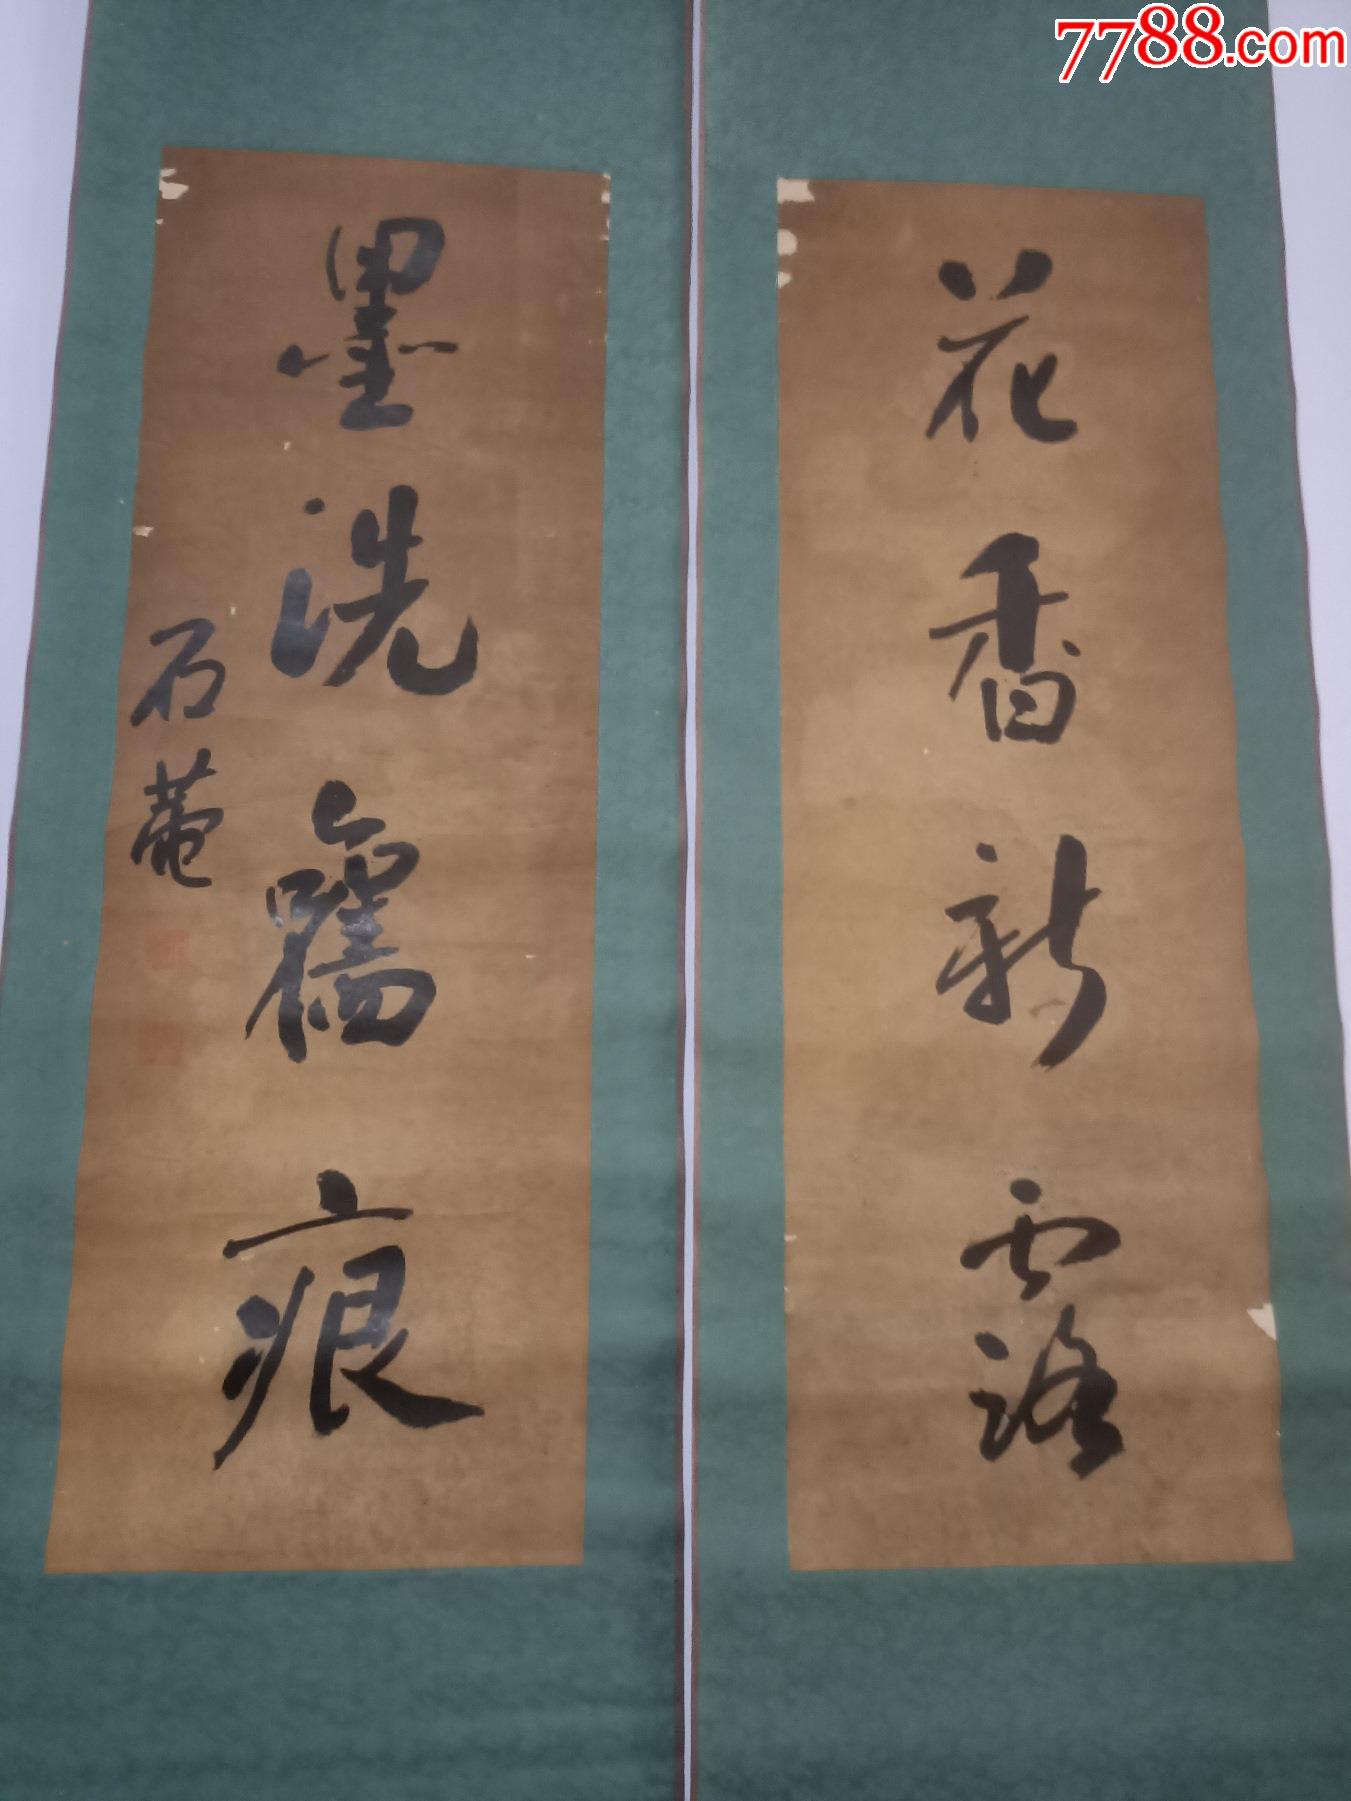 7788.com
花香新露
墨洗舊痕
石菴